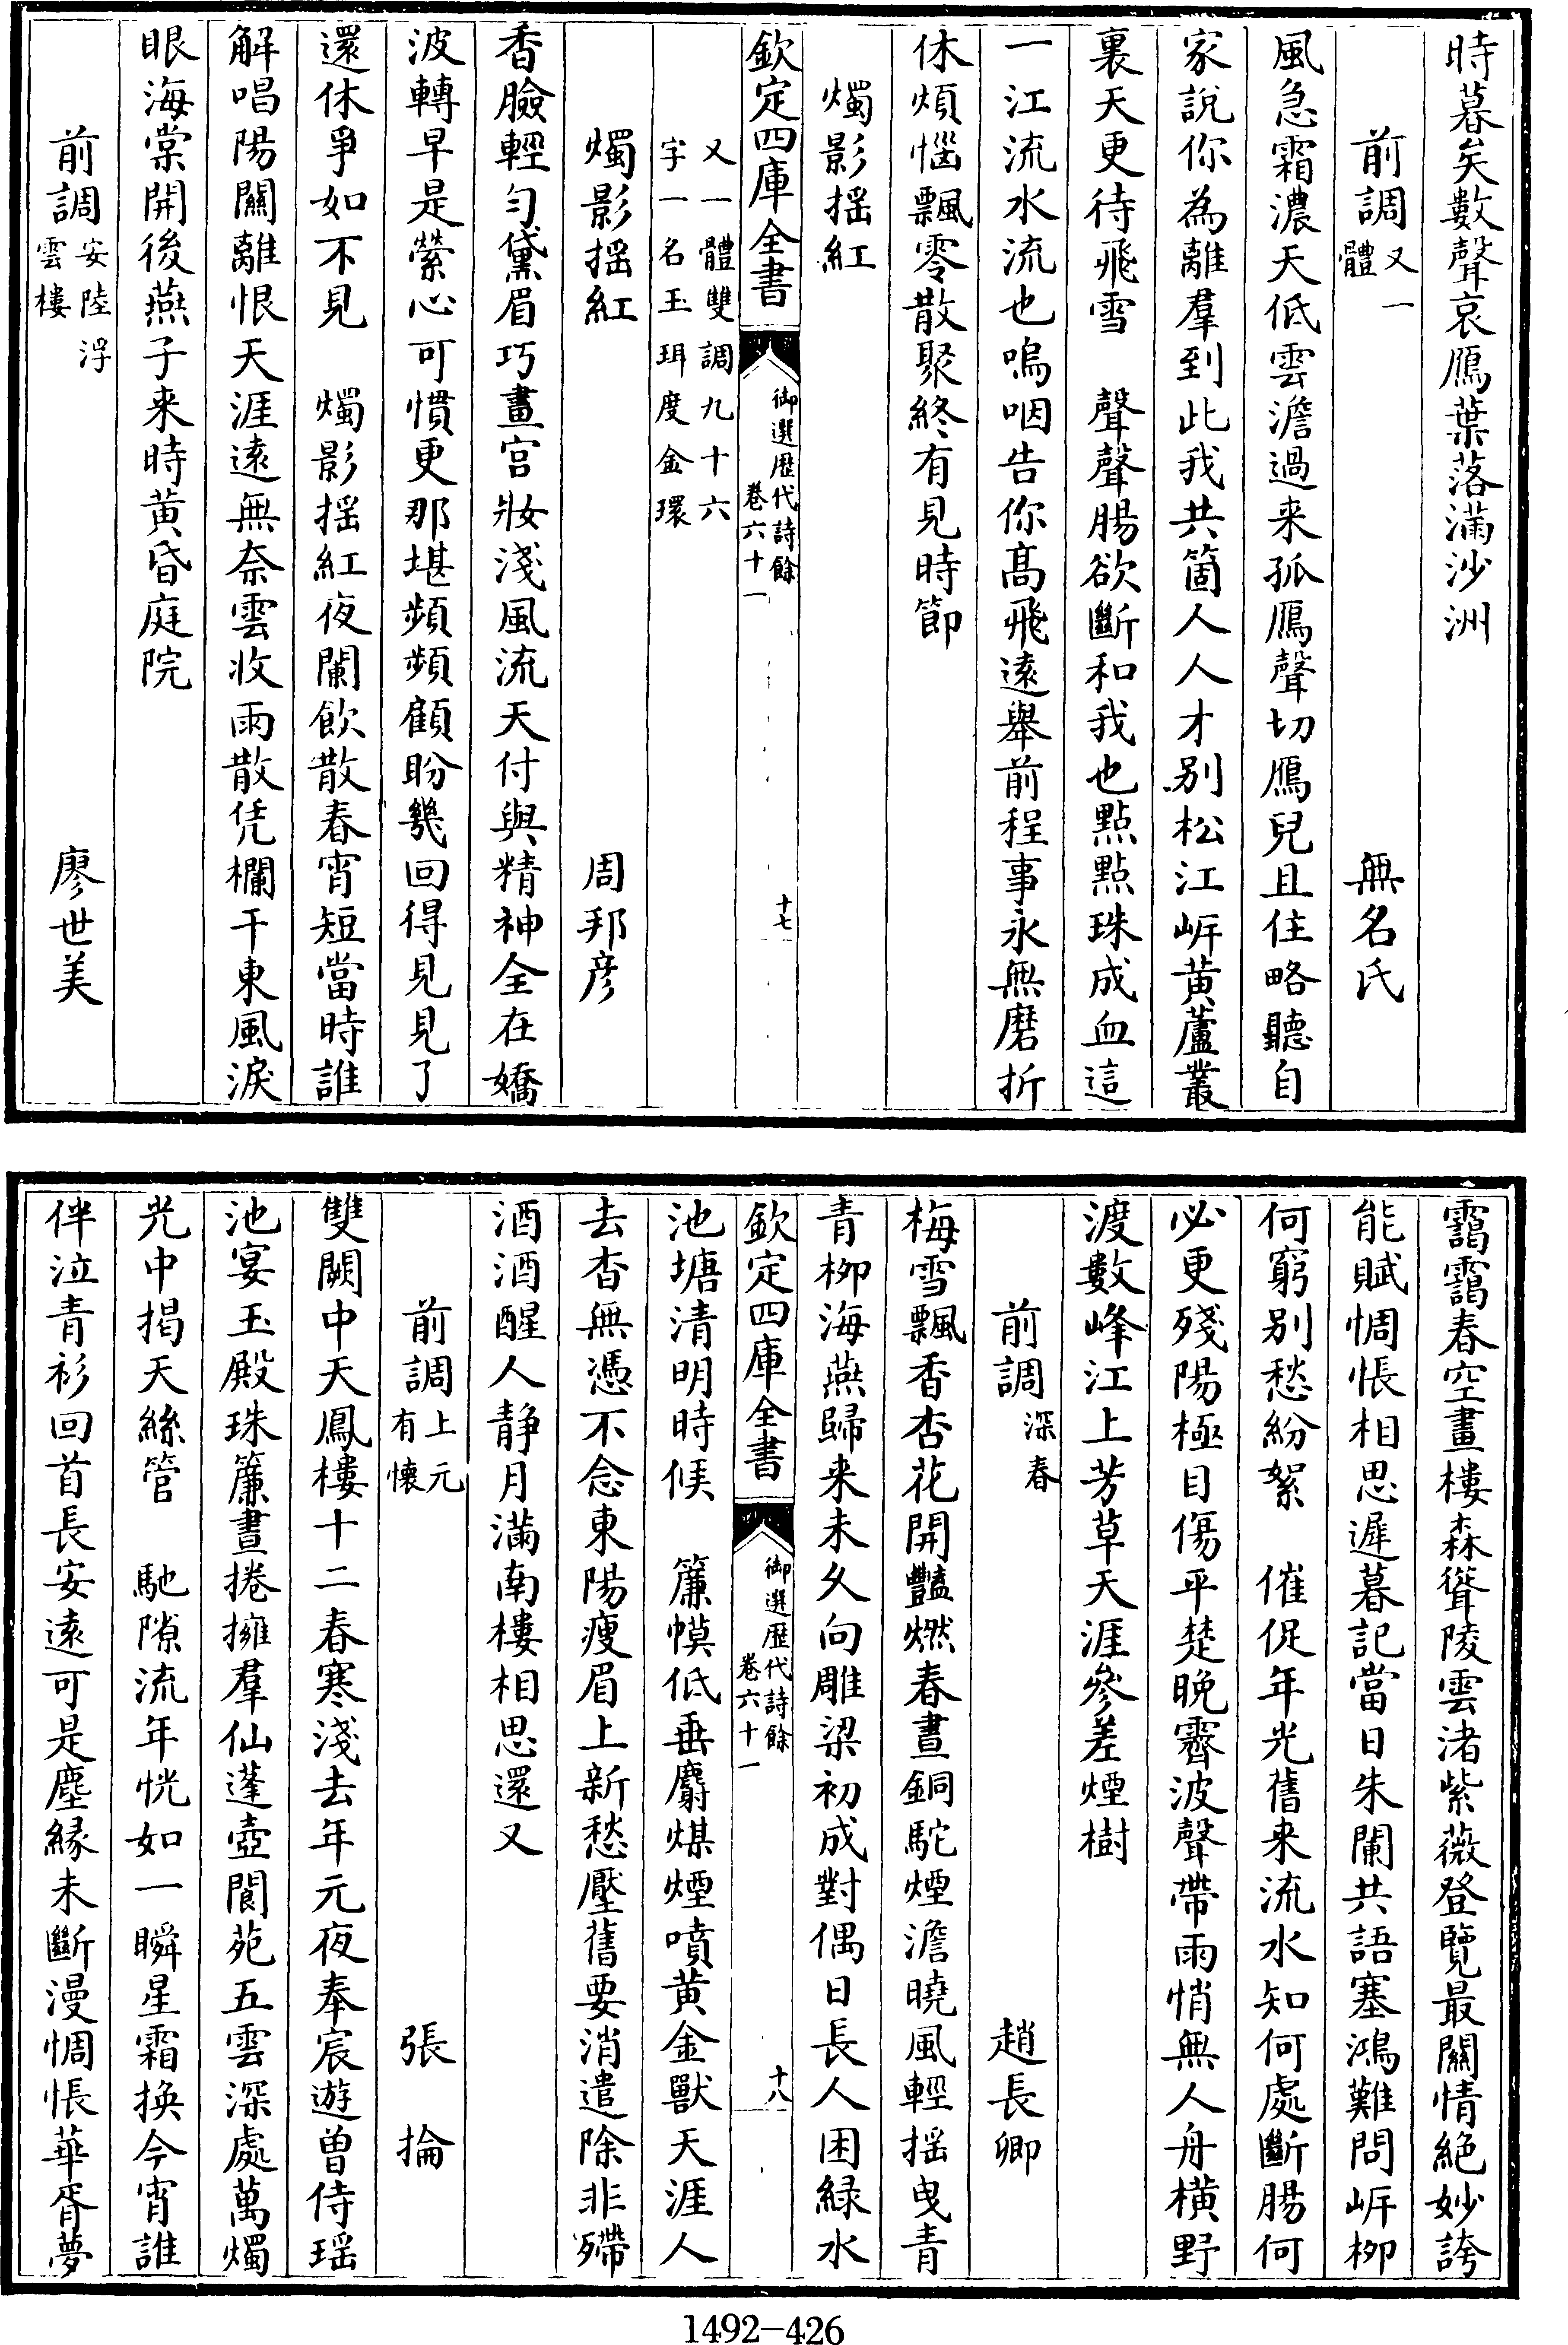 時暮矣數聲哀鴈葉落滿沙洲
前調又一體　無名氏
風急霜濃天低雲澹過来孤鴈聲切鴈兒且住略聽自
家說你為離羣到此我共箇人人才别松江㟁黄蘆叢
裏天更待飛雪　聲聲腸欲斷和我也點點珠成血這
一江流水流也嗚咽告你髙飛逺舉前程事永無磨折
休煩惱飄零散聚終有見時節
燭影揺紅
欽定四庫全書　御選歴代詩餘卷六十一　十七
又一體雙調九十六
字一名玉珥度金環
燭影揺紅　周邦彦
香臉輕勻黛眉巧畫宫妝淺風流天付與精神全在嬌
波轉早是縈心可慣更那堪頻頻顧盼幾回得見見了
還休爭如不見　燭影揺紅夜闌飲散春宵短當時誰
解唱陽關離恨天涯逺無奈雲收雨散凭欄干東風淚
眼海棠開後燕子来時黄昏庭院
前調安陸浮雲樓　廖世美
靄靄春空畫樓森聳陵雲渚紫薇登覽最關情絶妙誇
能賦惆悵相思遲暮記當日朱闌共語塞鴻難問㟁柳
何窮别愁紛絮　催促年光舊来流水知何處斷腸何
必更殘陽極目傷平楚晚霽波聲帶雨悄無人舟横野
渡數峰江上芳草天涯參差煙樹
前調深春　趙長卿
梅雪飄香杏花開豔燃春晝銅駝煙澹曉風輕揺曳青
青柳海燕歸来未久向雕梁初成對偶日長人困緑水
欽定四庫全書　御選歴代詩餘卷六十一　十八
池塘清明時候　簾幙低垂麝煤煙噴黄金獸天涯人
去杳無憑不念東陽瘦眉上新愁壓舊要消遣除非殢
酒酒醒人静月滿南樓相思還又
前調上元有懷　張掄
雙闕中天鳳樓十二春寒淺去年元夜奉宸遊曽侍瑶
池宴玉殿珠簾晝捲擁羣仙蓬壺閬苑五雲深處萬燭
光中揭天絲管　馳隙流年恍如一瞬星霜换今宵誰
伴泣青衫回首長安逺可是塵緣未斷漫惆悵華胥夢
1492-426